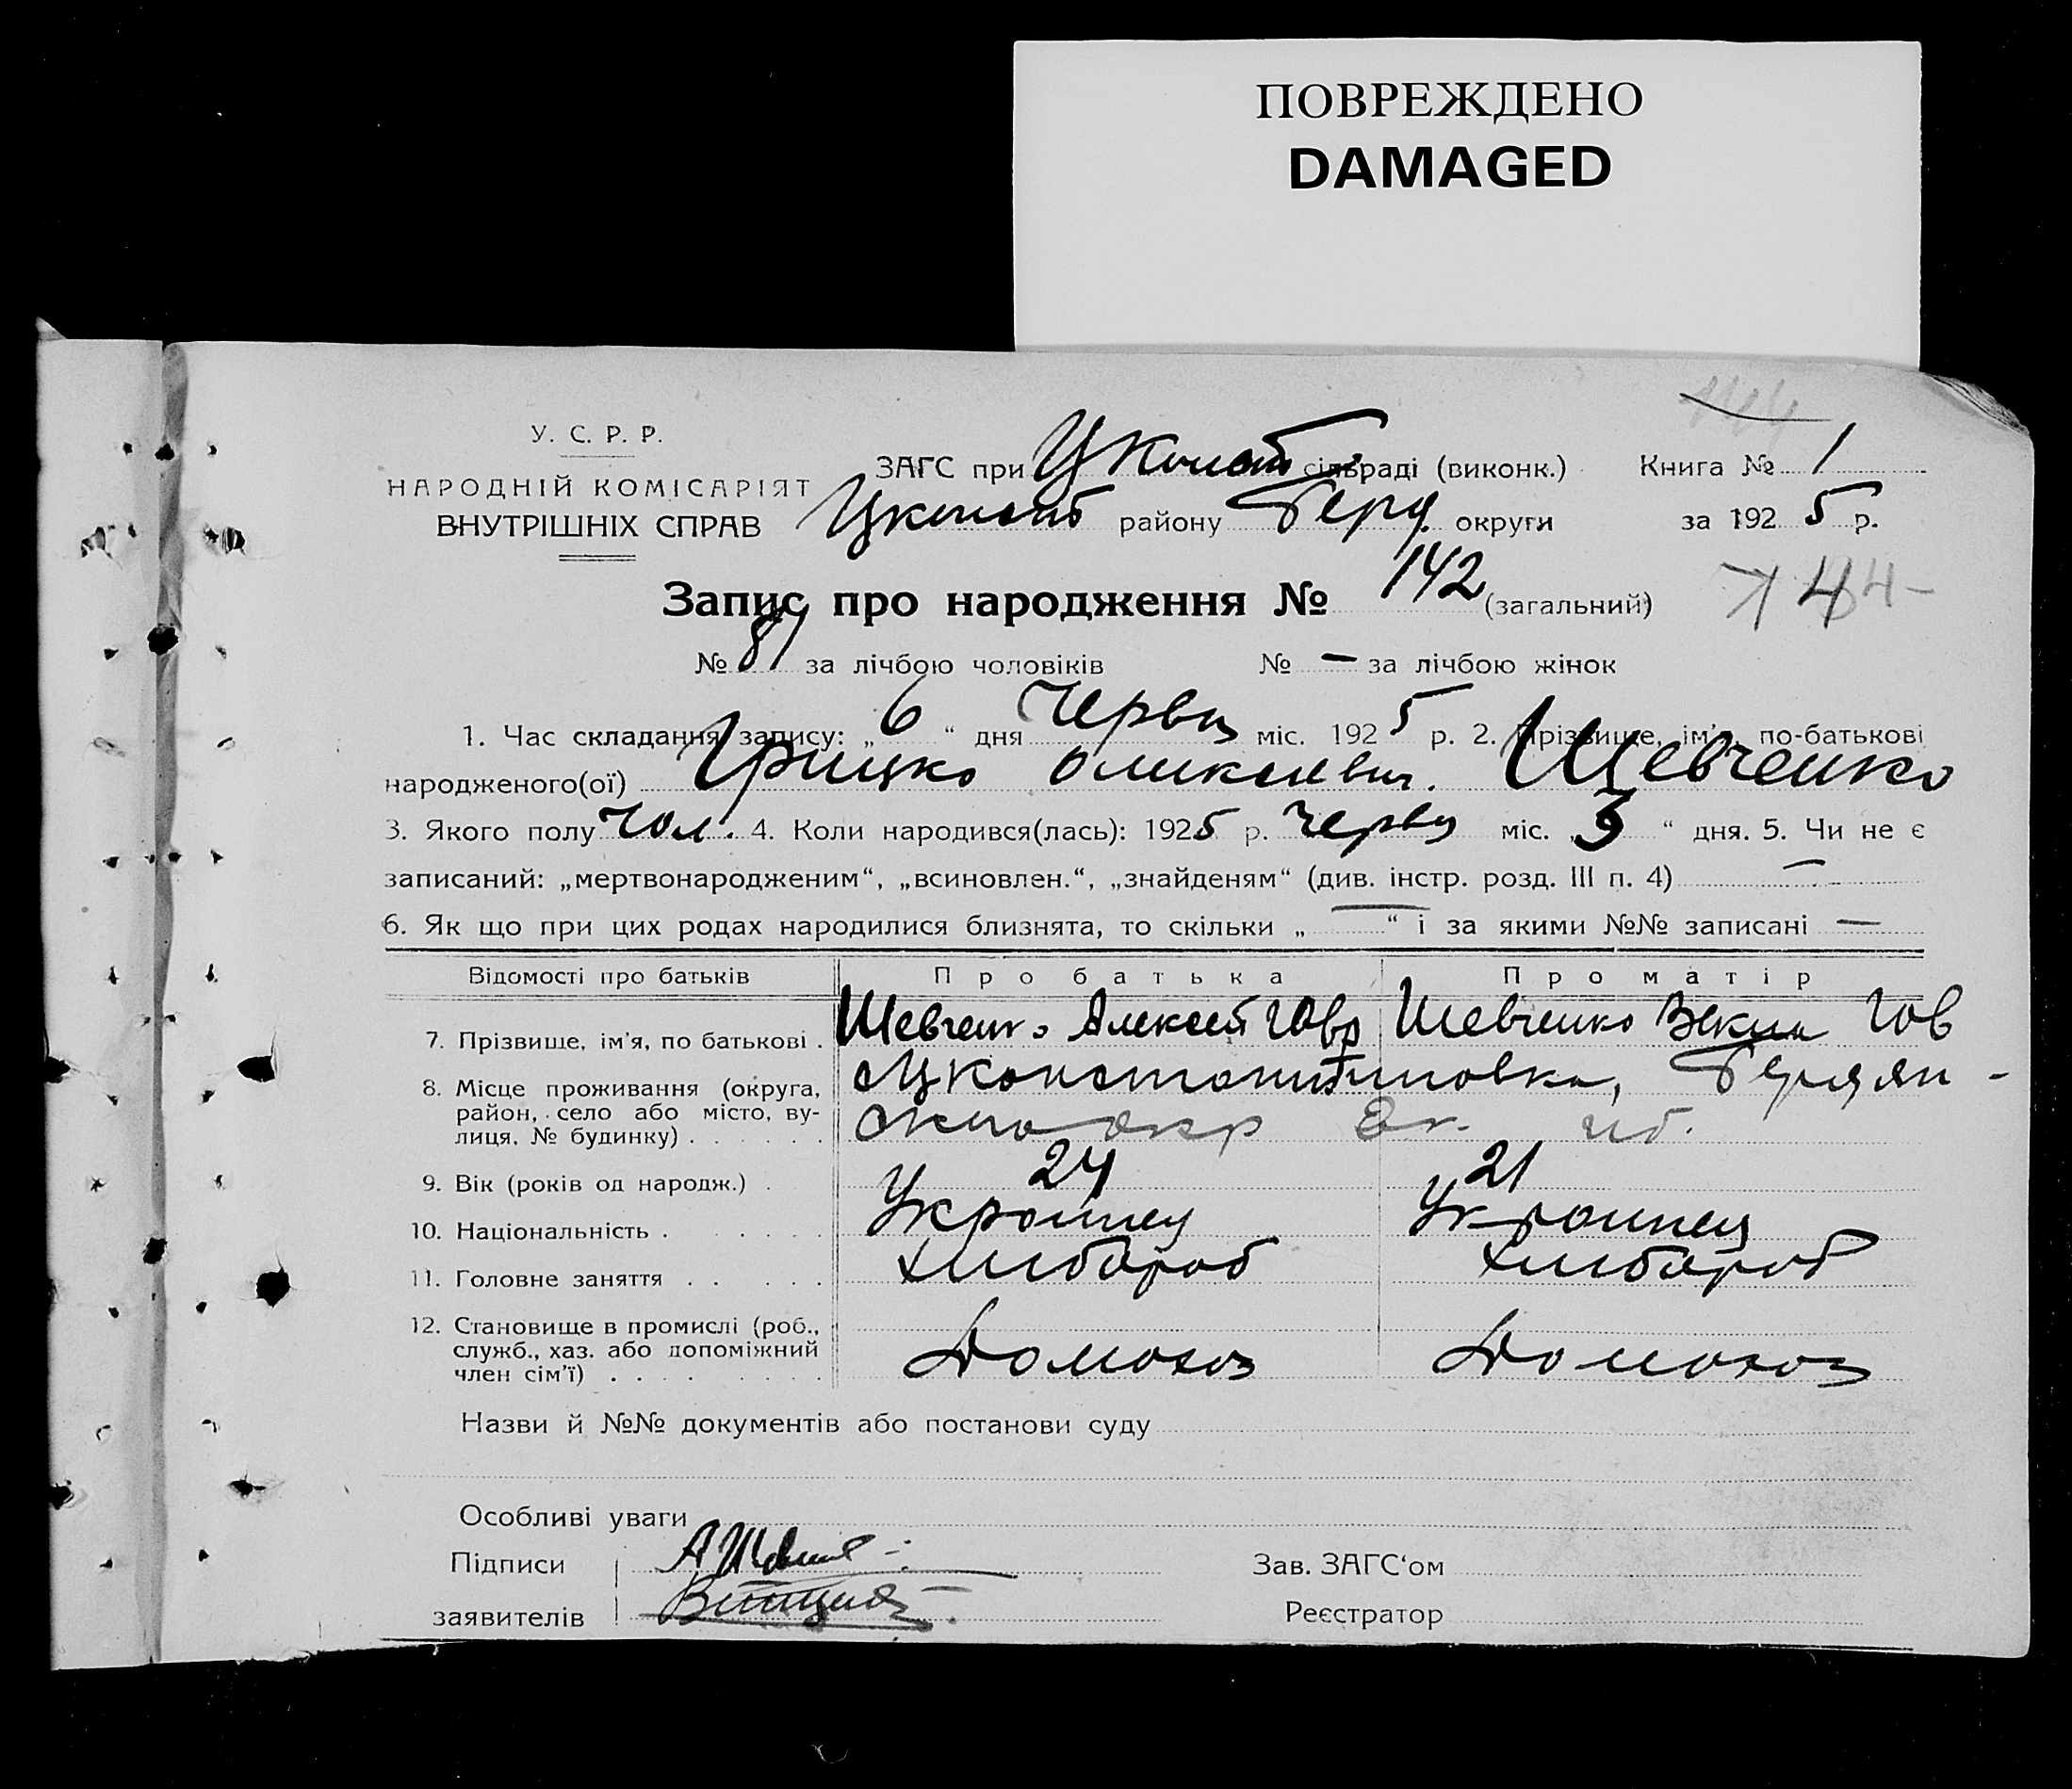 ПОВРЕЖДЕНО
DAMAGED
У. С. Р. Р.
НАРОДНІЙ КОМІСАРІЯТ
ВНУТРІШНІХ СПРАВ
ЗАГС при сільраді (виконк.) Книга № 1
району Берд. округи за 1925 р.
Запис про народження № 142 (загальний)
144
№ 81 за лічбою чоловіків № — за лічбою жінок
1. Час складання запису: „6“ дня Червц міс. 1925 р. 2. Прізвище, ім'я, по-батькові
народженого(ої) Грицко Оликсиевич. Шевченко
3. Якого полу чол. 4. Коли народився(лась): 1925 р. Червц міс. 3 “ дня. 5. Чи не є
записаний: „мертвонародженим“, „всиновлен.“, „знайденям“ (див. інстр. розд. III п. 4) —
6. Як що при цих родах народилися близнята, то скільки „—“ і за якими №№ записані —
Відомості про батьків Про батька Про матір
7. Прізвище, ім'я, по батькові . Шевченко Алексей Шевченко
8. Місце проживання (округа, район, село або місто, вулиця, № будинку) . . . . . . Цконстантиновка, Бердян-
окр
9. Вік (років од народж.) . 24 21
10. Національність . . . . . . Украинец Украинец
11. Головне заняття . . . . . Хлибороб Хлибороб
12. Становище в промислі (роб., служб., хаз. або допоміжний член сім'ї) . . . . . . . . Домохоз Домохоз
Назви й №№ документів або постанови суду
Особливі уваги
Підписи Зав. ЗАГС‘ом
заявителів Реєстратор